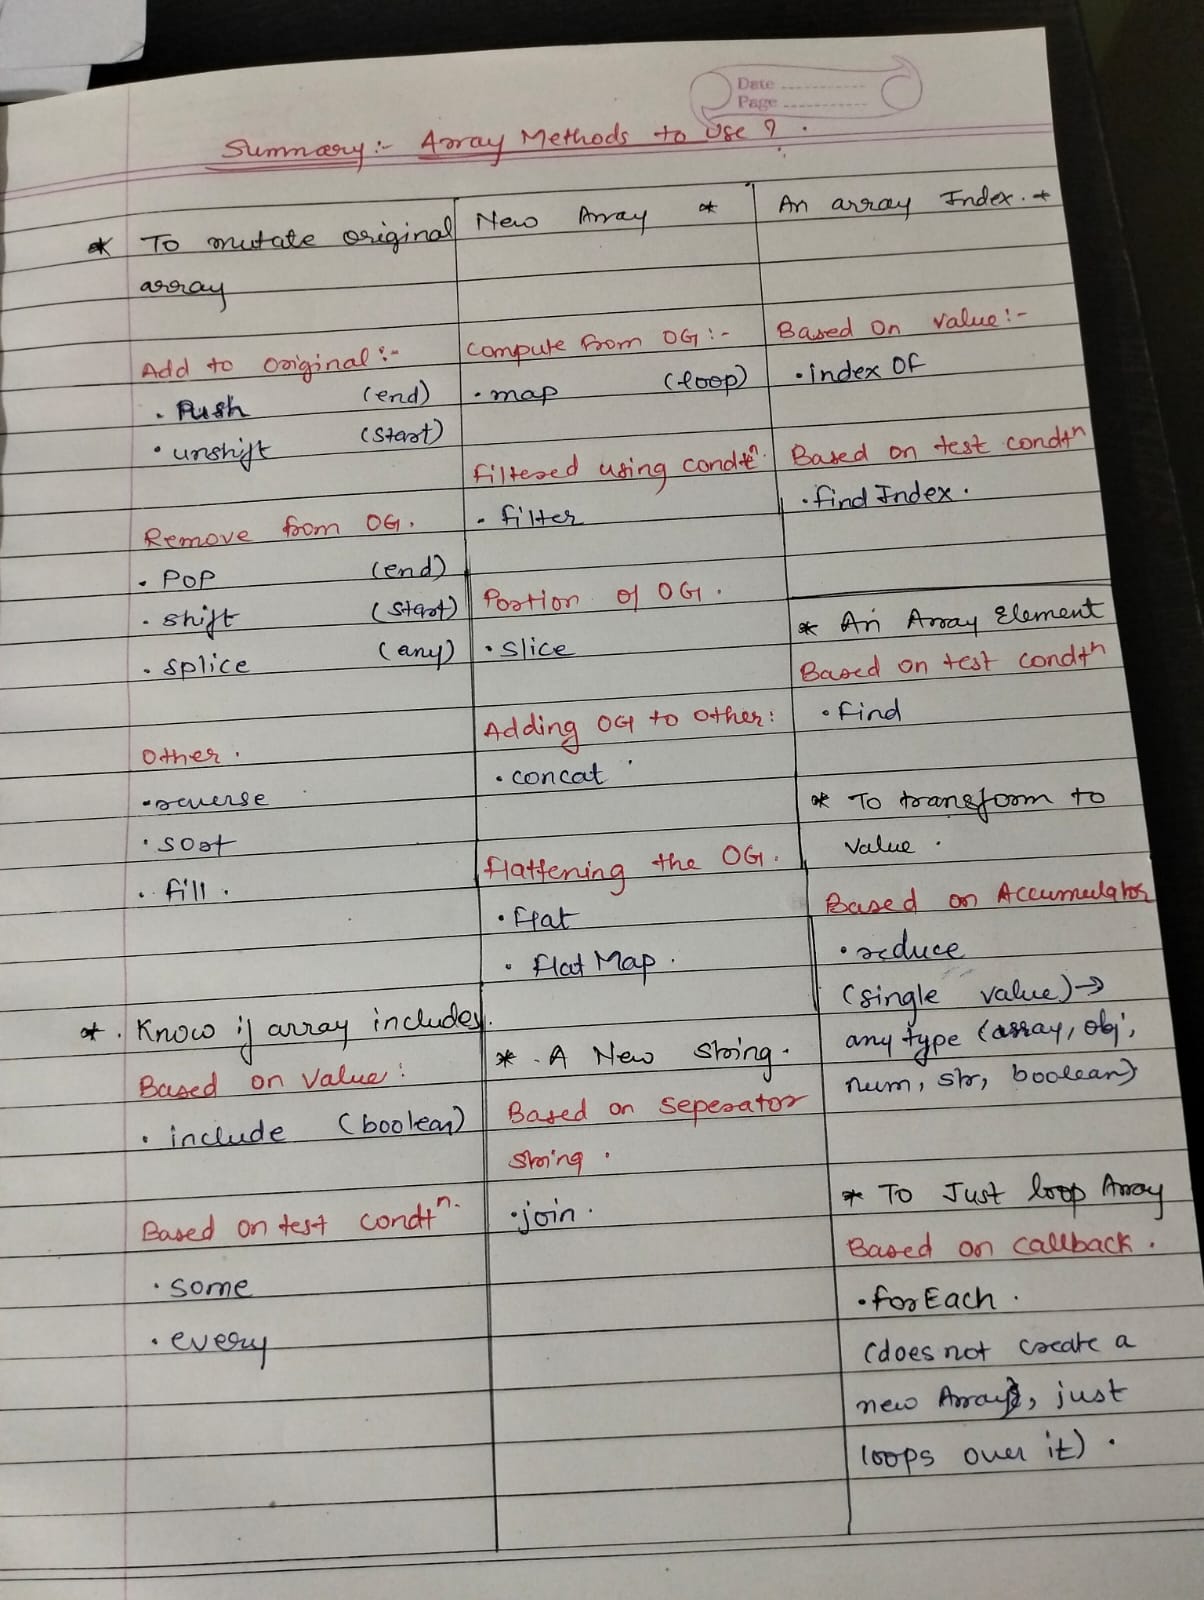 Date
Page
Summary :- Array Methods to Use ?
* To mutate original
array
Add to original :-
• Push (end)
• unshift (start)
Remove from OG.
• Pop (end)
• shift (start)
• splice (any)
Other.
• reverse
• sort
• fill.
*. Know if array includes.
Based on value :
• include (boolean)
Based on test condtn.
• some
• every
New Array *
Compute from OG :-
• map (loop)
filtered using condtn.
• filter
Portion of OG.
• slice
Adding OG to other :
• concat
flattening the OG.
• flat
• flat Map.
* . A New string.
Based on seperator
string.
• join.
An array Index. *
Based On value :-
• index Of
Based on test condtn
• find Index.
* An Array Element
Based on test condtn
• find
* To transform to
value.
Based on Accumulator
• reduce
(single value) →
any type (array, obj,
num, str, boolean)
* To Just loop Array
Based on callback.
• for Each.
(does not create a
new Array, just
loops over it).